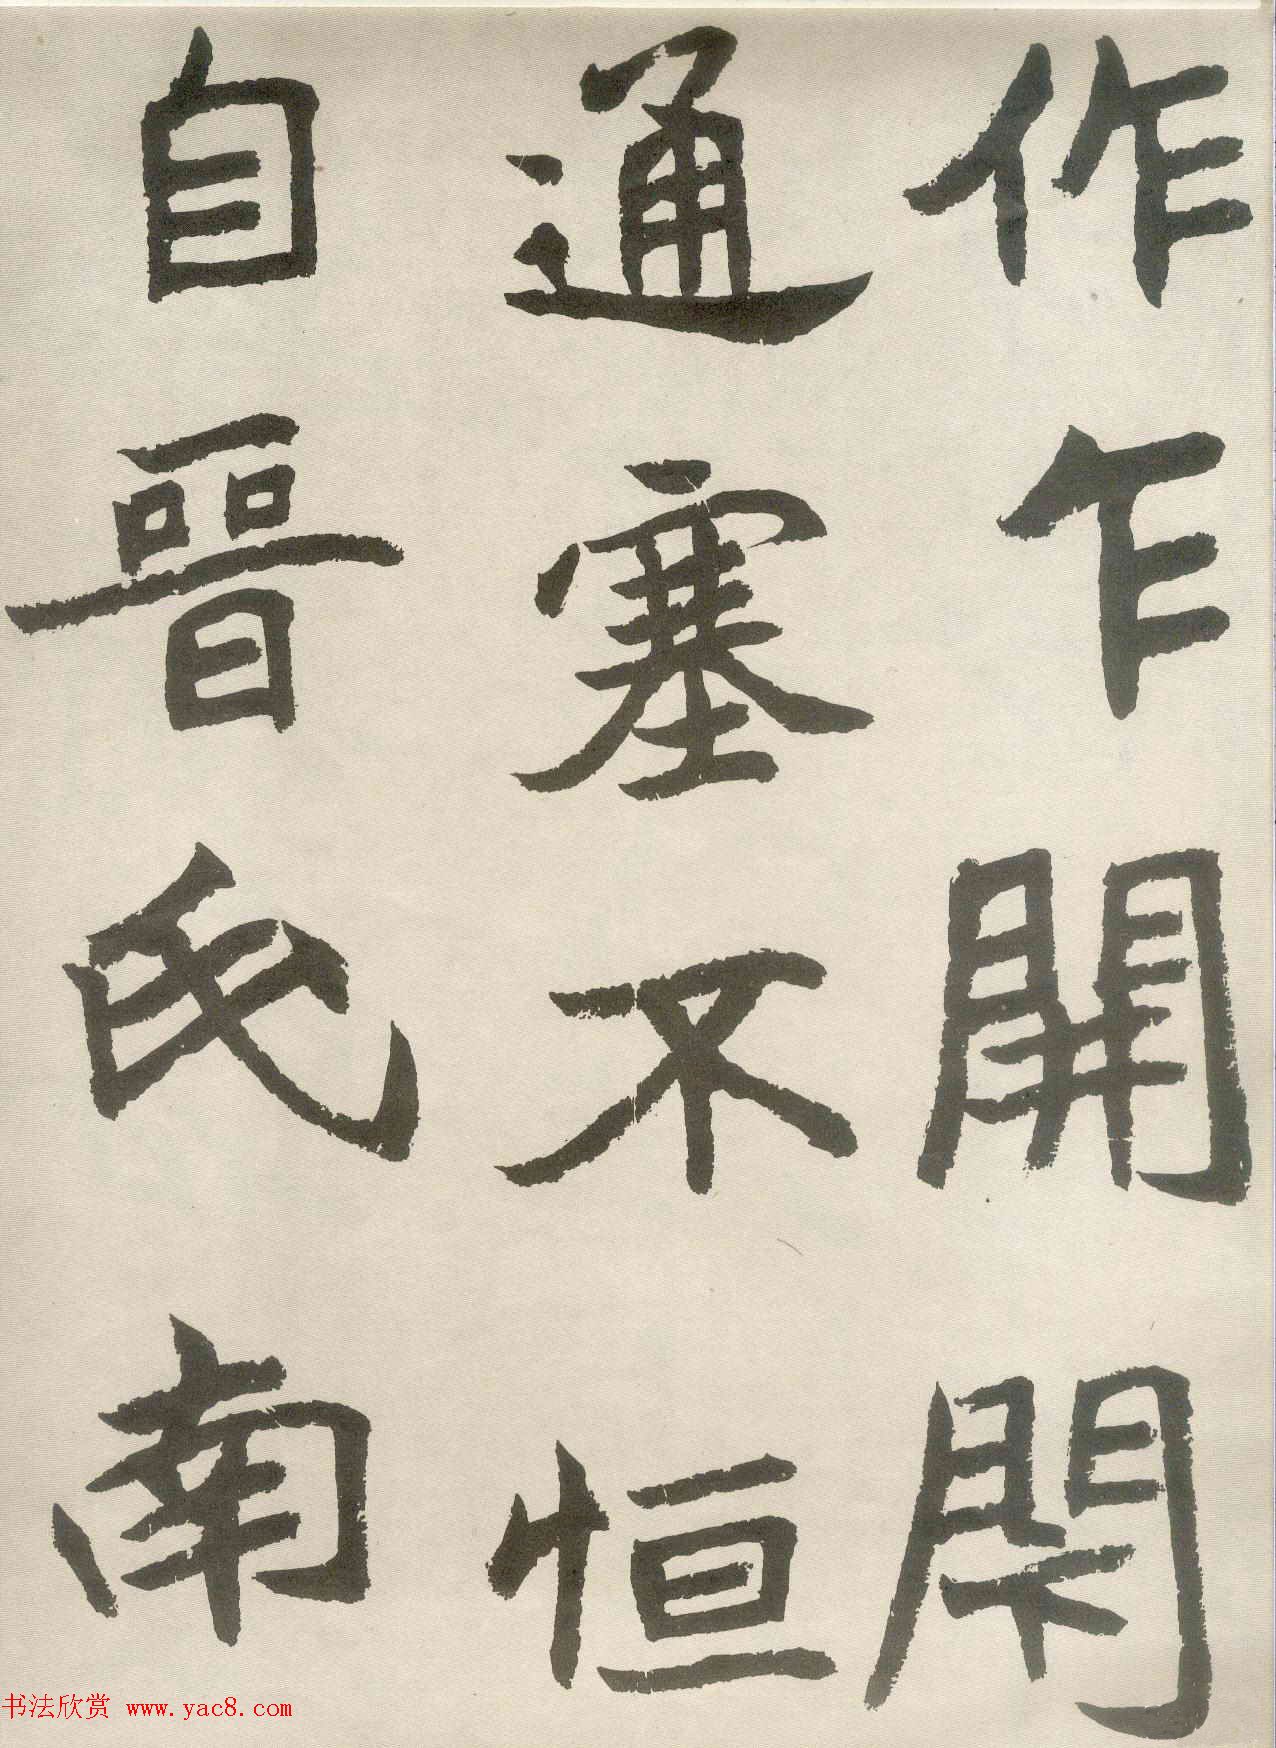 作乍開閇
通塞不恒
自晉氏南
书法欣赏 www.yac8.com